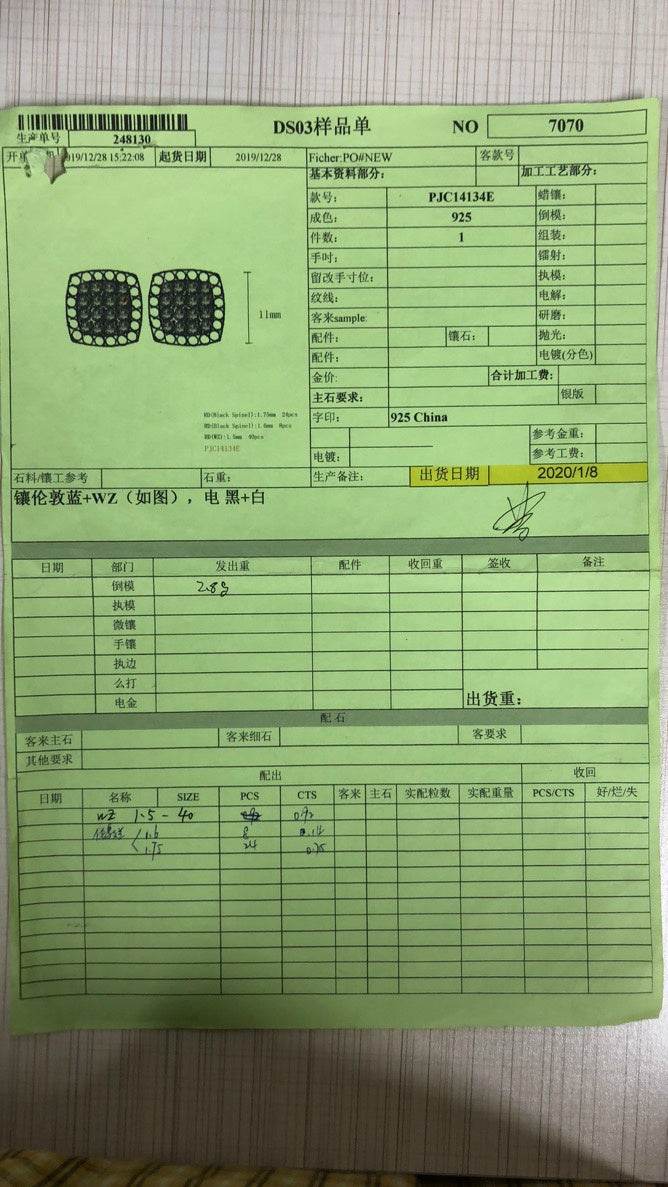 DS03样品单 NO 7070
生产单号 248130
开单 2019/12/28 15:22:08 起货日期 2019/12/28 Ficher:PO#NEW 客款号
基本资料部分: 加工工艺部分:
款号: PJC14134E 蜡镶:
成色: 925 倒模:
件数: 1 组装:
手吋: 镭射:
留改手寸位: 执模:
纹线: 电解:
客来sample: 研磨:
11mm
配件: 镶石: 抛光:
配件: 电镀(分色)
金价: 合计加工费:
主石要求: 银版
RD(Black Spinel):1.75mm 24pcs
RD(Black Spinel):1.6mm 8pcs
RD(WZ):1.5mm 40pcs
PJC14134E
字印: 925 China
参考金重:
电镀: 参考工费:
石料/镶工参考 石重: 生产备注: 出货日期 2020/1/8
镶伦敦蓝+WZ（如图），电 黑+白
日期 部门 发出重 配件 收回重 签收 备注
倒模 2.8g
执模
微镶
手镶
执边
么打
电金 出货重:
配 石
客来主石 客来细石 客要求
其他要求
配出 收回
日期 名称 SIZE PCS CTS 客来 主石 实配粒数 实配重量 PCS/CTS 好/烂/失
WZ 1.5 - 40 0.92
1.6 8 0.14
1.75 24 0.75